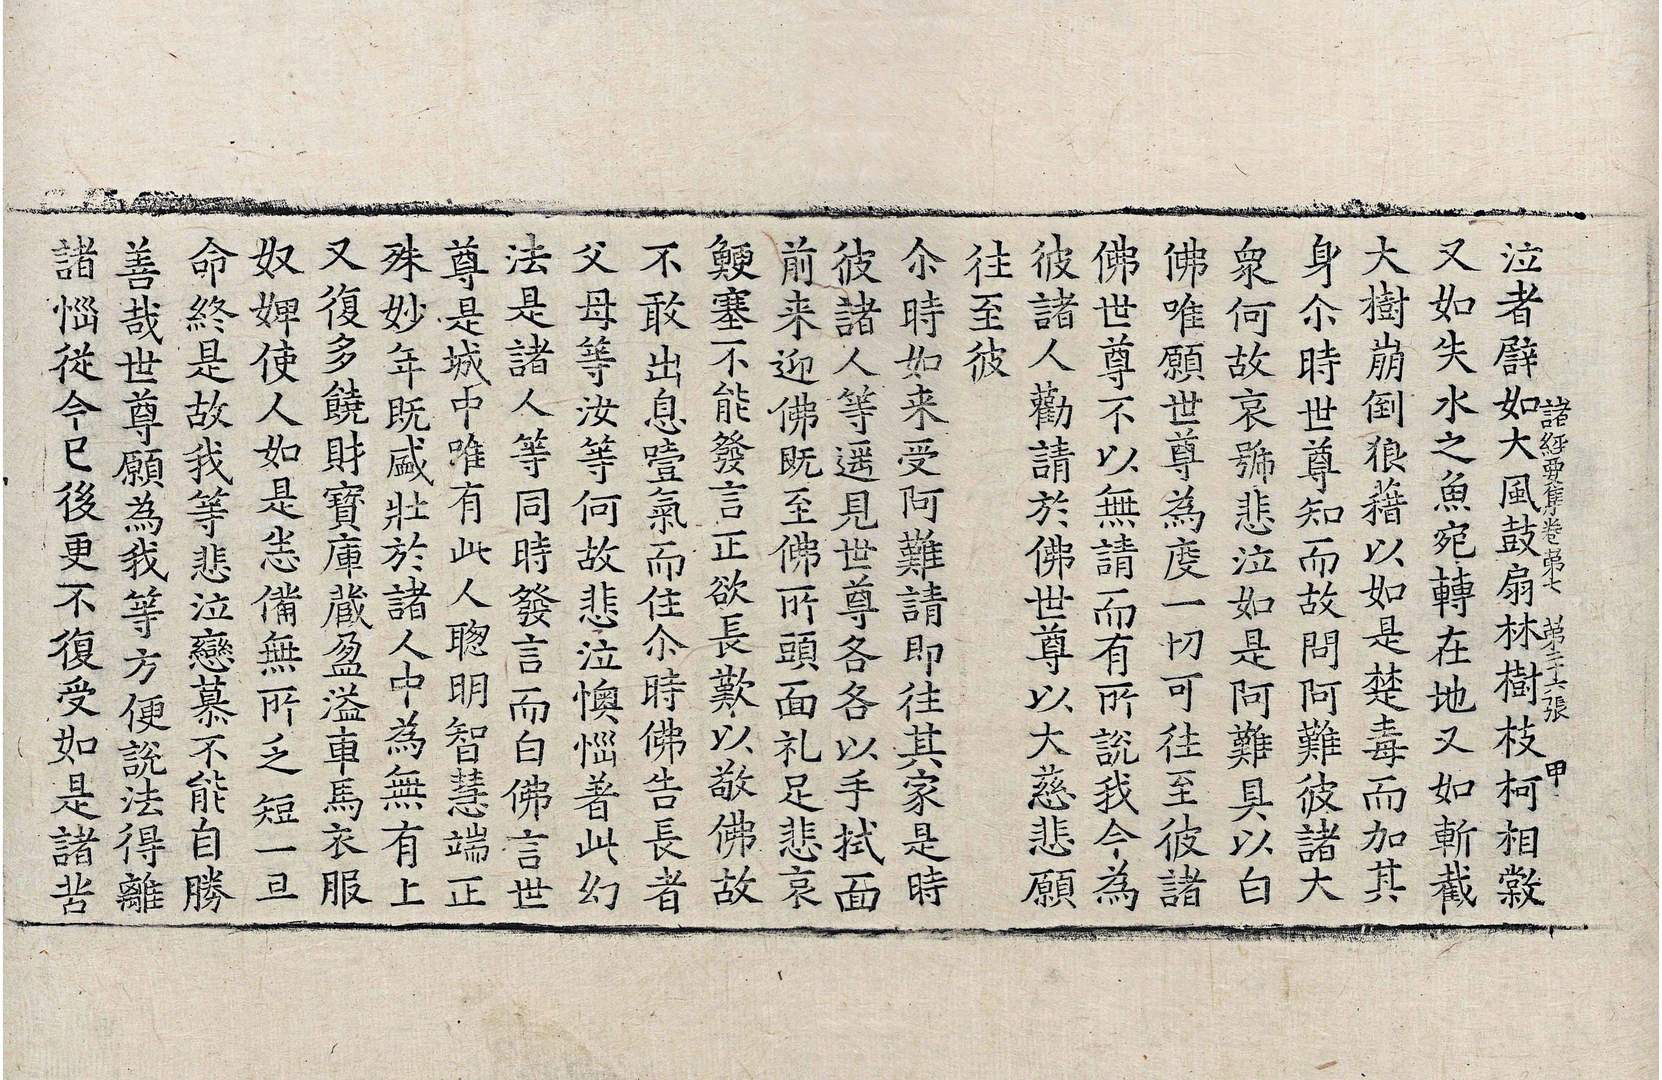 諸經要集卷第七　第二十六張　甲
泣者譬如大風鼓扇林樹枝柯相棠
又如失水之魚宛轉在地又如斬截
大樹崩倒狼藉以如是楚毒而加其
身尒時世尊知而故問阿難彼諸大
衆何故哀號悲泣如是阿難具以白
佛唯願世尊為度一切可往至彼諸
佛世尊不以無請而有所說我今為
彼諸人勸請於佛世尊以大慈悲願
往至彼
尒時如来受阿難請即往其家是時
彼諸人等遥見世尊各各以手拭面
前来迎佛既至佛所頭面礼足悲哀
鯁塞不能發言正欲長歎以敬佛故
不敢出息噎氣而住尒時佛告長者
父母等汝等何故悲泣懊惱著此幻
法是諸人等同時發言而白佛言世
尊是城中唯有此人聦明智慧端正
殊妙年既盛壯於諸人中為無有上
又復多饒財寶庫藏盈溢車馬衣服
奴婢使人如是悉備無所乏短一旦
命終是故我等悲泣戀慕不能自勝
善哉世尊願為我等方便說法得離
諸惱從今已後更不復受如是諸苦